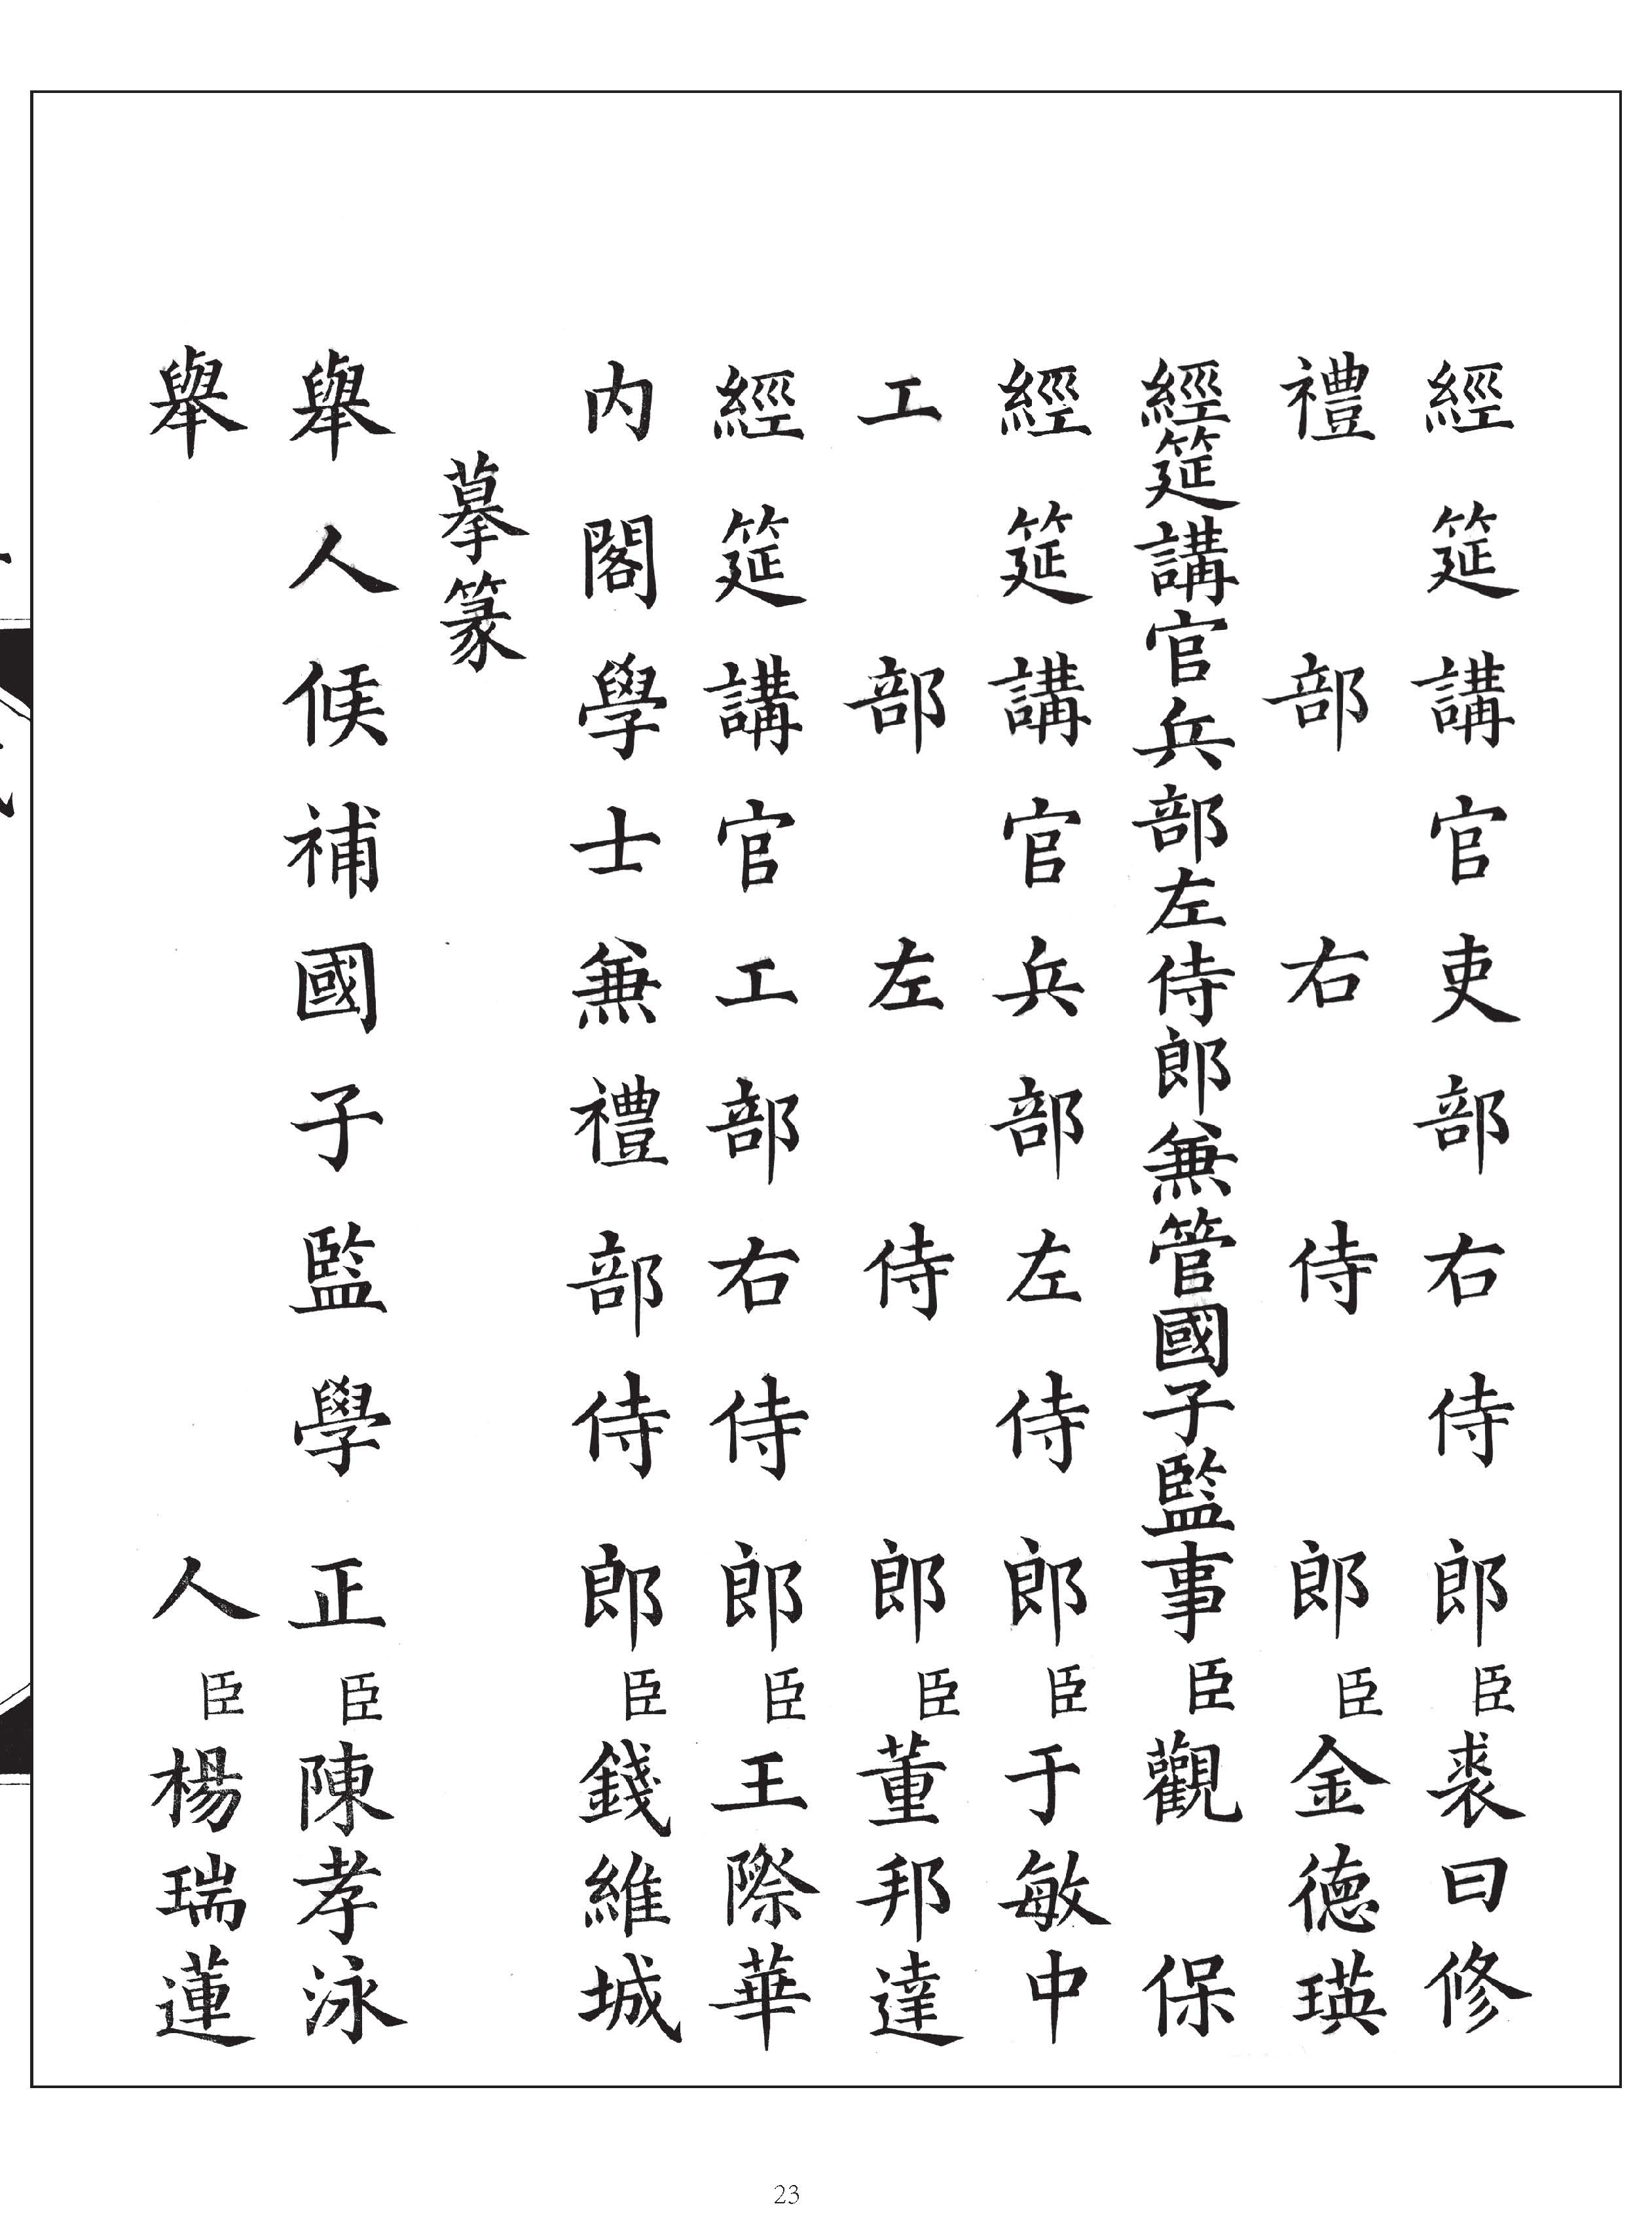 經筵講官吏部右侍郎臣裘曰修
禮部右侍郎臣金德瑛
經筵講官兵部左侍郎兼管國子監事臣觀保
經筵講官兵部左侍郎臣于敏中
工部左侍郎臣董邦達
經筵講官工部右侍郎臣王際華
内閣學士兼禮部侍郎臣錢維城
摹篆
舉人候補國子監學正臣陳孝泳
舉人臣楊瑞蓮
23